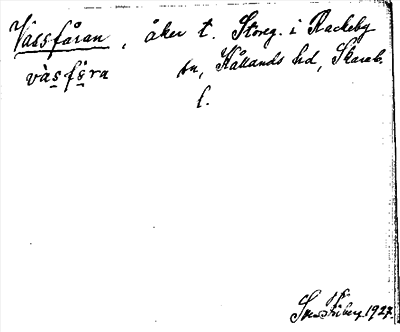 Vassfåran, åker t. Storeg. i Rackeby
vàsfåra sn, Kållands hd, Skarab.
l.
1927.